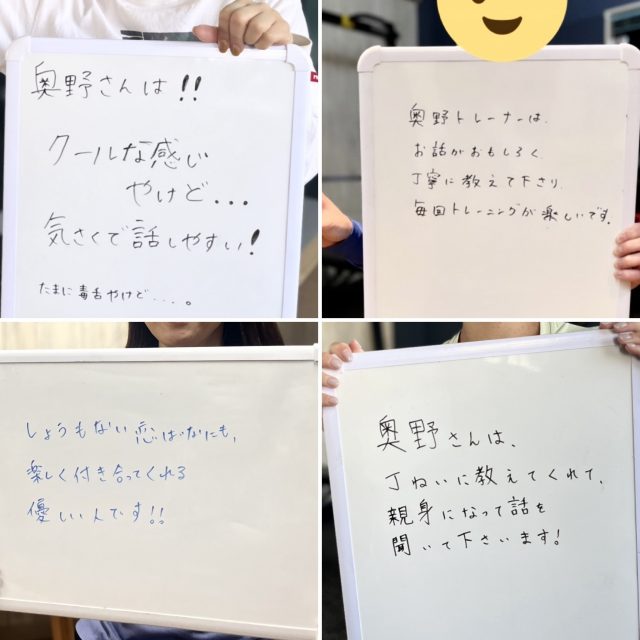 奥野さんは!!
クールな感じ
やけど...
気さくで話しやすい!
たまに毒舌やけど....。
奥野トレーナーは、
お話がおもしろく
丁寧に教えて下さり、
毎回トレーニングが楽しいです。
しょうもない恋ばなにも、
楽しく付き合ってくれる
優しい人です!!
奥野さんは、
丁ねいに教えてくれて、
親身になって話を
聞いて下さいます!